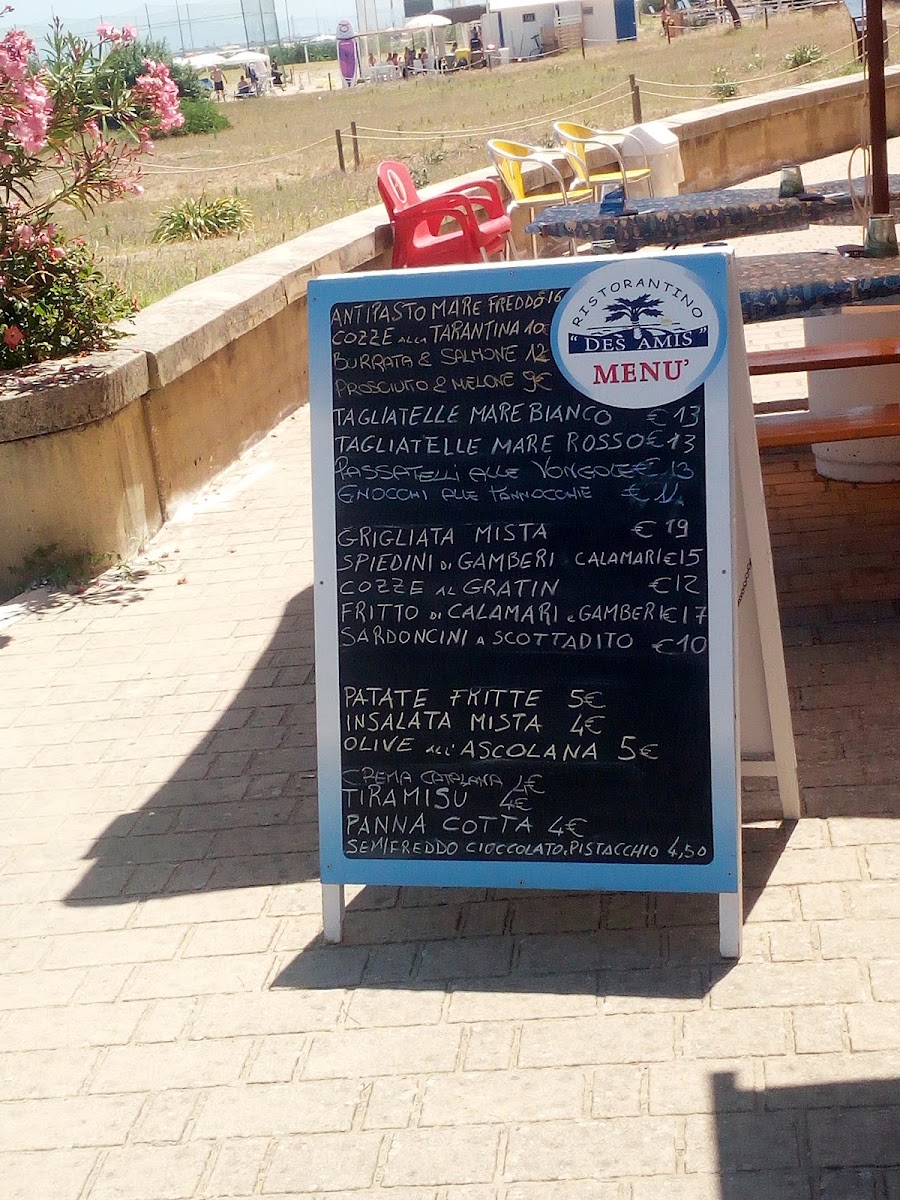 RISTORANTINO
"DES AMIS"
MENU'
ANTIPASTO MARE FREDDO 16
COZZE ALLA TARANTINA 10
BURRATA & SALMONE 12
PROSCIUTO & MELONE 9€
TAGLIATELLE MARE BIANCO € 13
TAGLIATELLE MARE ROSSO € 13
PASSATELLI ALLE VONGOLE € 13
GNOCCHI ALLE PANNOCCHIE € 11
GRIGLIATA MISTA € 19
SPIEDINI DI GAMBERI CALAMARI € 15
COZZE AL GRATIN € 12
FRITTO DI CALAMARI E GAMBERI € 17
SARDONCINI A SCOTTADITO € 10
PATATE FRITTE 5€
INSALATA MISTA 4€
OLIVE ALL'ASCOLANA 5€
CREMA CATALANA 4€
TIRAMISU 4€
PANNA COTTA 4€
SEMIFREDDO CIOCCOLATO, PISTACCHIO 4,50